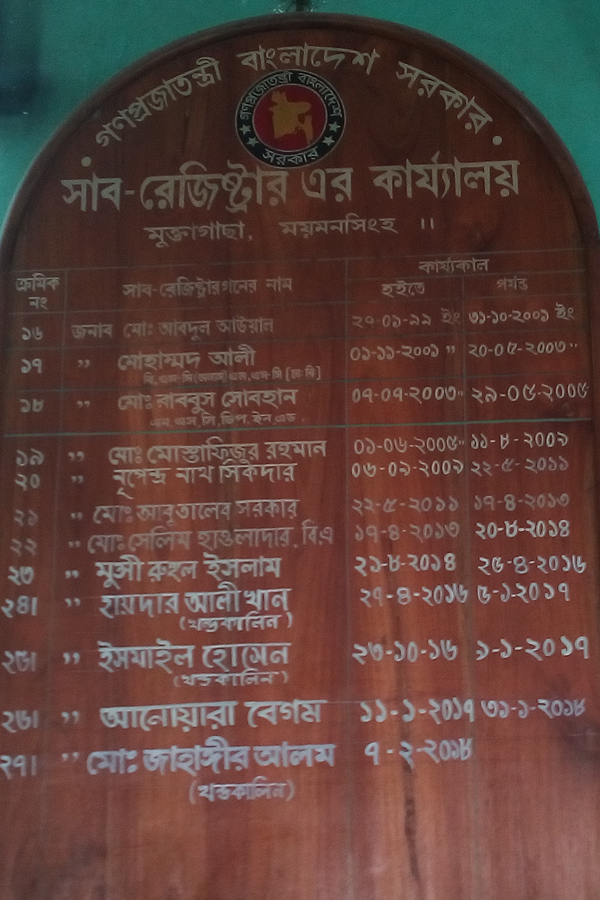 গণপ্রজাতন্ত্রী বাংলাদেশ সরকার
গণপ্রজাতন্ত্রী বাংলাদেশ
সরকার
সাব-রেজিষ্ট্রার এর কার্য্যালয়
মুক্তাগাছা, ময়মনসিংহ ।।
ক্রমিক নং সাব-রেজিষ্ট্রারগনের নাম কার্য্যকাল
হইতে পর্যন্ত
১৬ জনাব মোঃ আবদুল আউয়াল ২৭-০১-৯৯ ইং ৩১-১০-২০০১ ইং
১৭ " মোহাম্মদ আলী ০১-১১-২০০১ " ২০-০৫-২০০৩ "
বি,এস-সি (অনার্স) এম,এস-সি
১৮ " মোঃ রাববুস সোবহান ০৭-০৭-২০০৩ " ২৯-০৫-২০০৫
এম,এস,সি,ডিপ,ইন এড.
১৯ " মোঃ মোস্তাফিজুর রহমান ০১-০৬-২০০৫ " ১১-৮-২০০৯
২০ " নৃপেন্দ্র নাথ সিকদার ০৬-০৯-২০০৯ ২২-৫-২০১১
২১ " মোঃ আবুতালেব সরকার ২২-৫-২০১১ ১৭-৪-২০১৩
২২ " মোঃ সেলিম হাওলাদার, বিএ ১৭-৪-২০১৩ ২০-৮-২০১৪
২৩ " মুন্সী রুহুল ইসলাম ২১-৮-২০১৪ ২৫-৪-২০১৬
২৪। " হায়দার আলী খান ২৭-৪-২০১৬ ৫-১-২০১৭
(খন্ডকালিন)
২৫। " ইসমাইল হোসেন ২৩-১০-১৬ ১-১-২০১৭
(খন্ডকালিন)
২৬। " আনোয়ারা বেগম ১১-১-২০১৭ ৩১-১-২০১৮
২৭। " মোঃ জাহাঙ্গীর আলম ৭-২-২০১৮
(খন্ডকালিন)